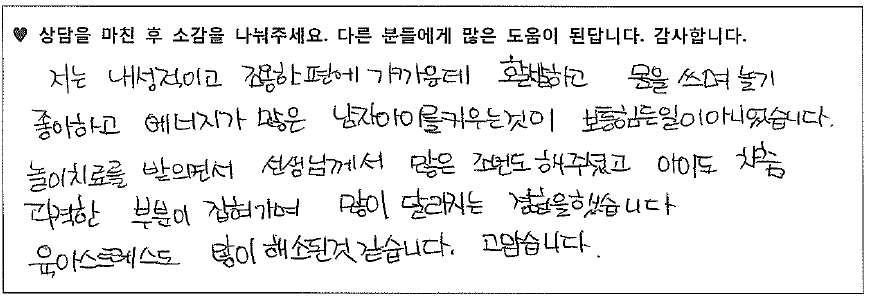 ♥ 상담을 마친 후 소감을 나눠주세요. 다른 분들에게 많은 도움이 된답니다. 감사합니다.
저는 내성적이고 조용한편에 가까운데 활발하고 몸을 쓰며 놀기
좋아하고 에너지가 많은 남자아이를키우는것이 보통힘든일이아니었습니다.
놀이치료를 받으면서 선생님께서 많은 조언도 해주셨고 아이도 차츰
과격한 부분이 잡혀가며 많이 달라지는 경험을했습니다
육아스트레스도 많이해소된것 같습니다. 고맙습니다.